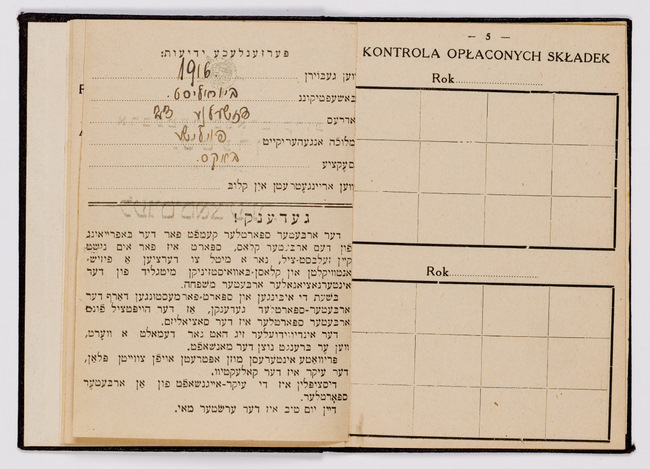 פערזענלעכע ידיעות:
ווען געבוירן 1916
באשעפטיקונג
אדרעס
מלוכה אנגעהעריקייט פויליש
סעקציע באקס.
ווען אריינגעטרעטן אין קלוב
געדענק!
דער ארבעטער ספארטלער קעמפט פאר דער באפרייאונג
פון דעם ארבעטער קלאס, ספארט איז פאר אים נישט
קיין זעלבסט־ציל, נאר א מיטל צו דערציען א פיזיש־
אנטוויקלטן און קלאסן־באוואוסטזיניקן מיטגליד פון דער
אינטערנאציאנאלער ארבעטער משפחה.
בשעת די איבונגען אין ספארט־פארמעסטונגען דארף דער
ארבעטער־ספארטלער געדענקן, אז דער הויפטציל פונם
ארבעטער ספארטלער איז דער סאציאליזם.
דער אינדיווידועלער זיג האט נאר דעמאלט א ווערט,
ווען ער ברענגט נוצן דער מאנשאפט.
פריוואטע אינטערעסן מוזן אפטרעטן אויפן צווייטן פלאן,
דער עיקר איז דער קאלעקטיוו.
דיסציפלין איז די עיקר־אייגנשאפט פון אן ארבעטער
ספארטלער.
דיין יום טוב איז דער ערשטער מאי.
— 5 —
KONTROLA OPŁACONYCH SKŁADEK
Rok
Rok